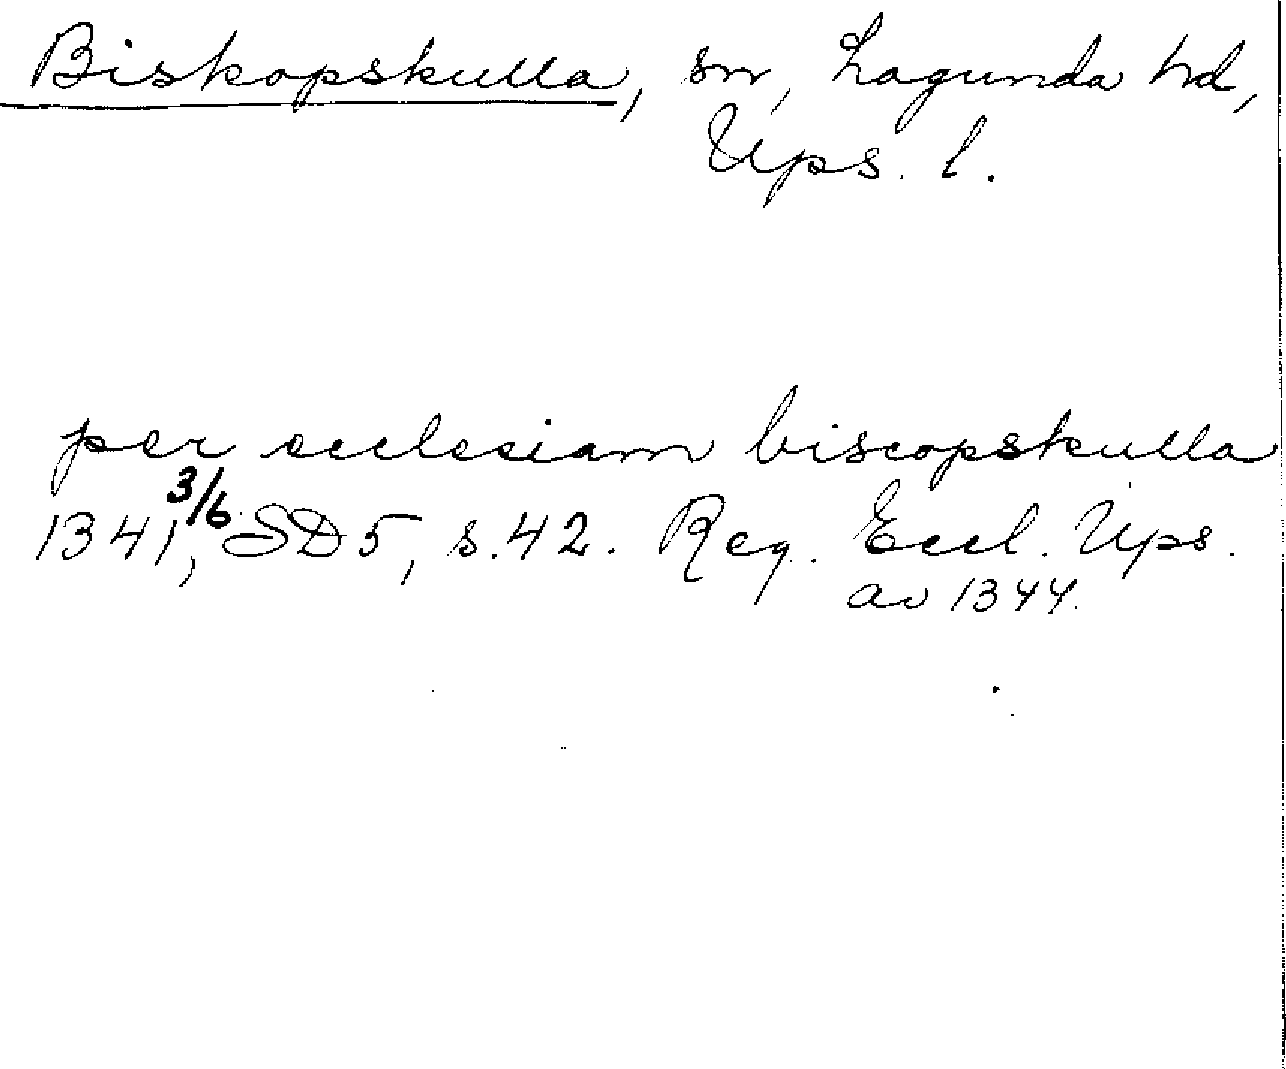 Biskopskulla, sn, Lagunda hd,
Ups. l.
per ecclesiam biscopskulla
1341, 3/6 SD 5, s. 42. Reg. Eccl. Ups.
av 1344.